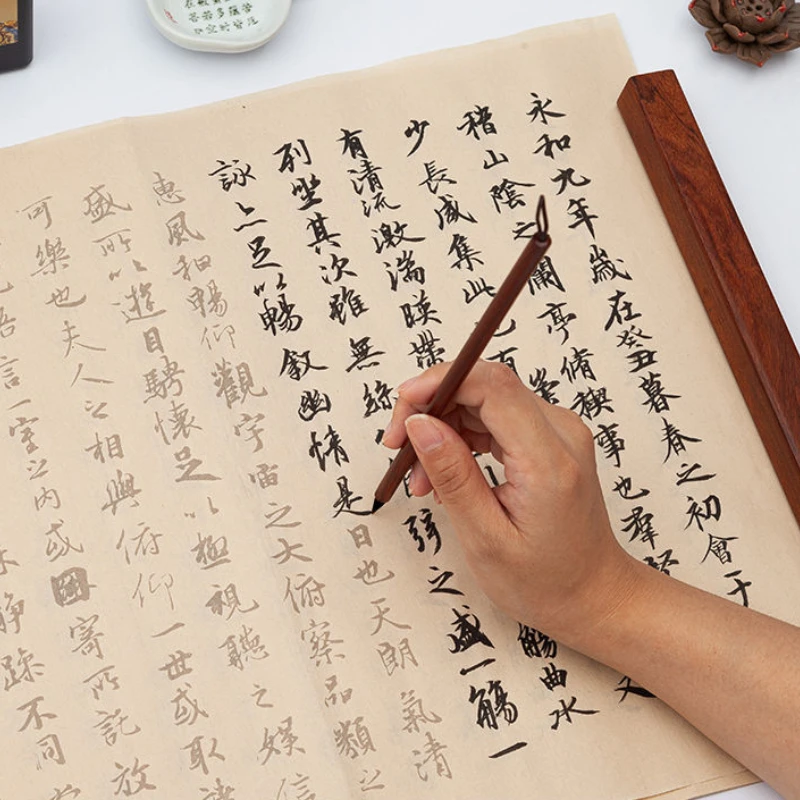 永和九年歲在癸丑暮春之初會于
稽山陰之蘭亭脩禊事也羣賢
少長咸集此地有崇 又
有清流激湍暎帶 觴曲水
列坐其次雖無絲 弦之盛一觴一
詠亦足以暢敘幽情是日也天朗氣清
惠風和暢仰觀宇宙之大俯察品類之
盛所以遊目騁懷足以極視聽之娛信
可樂也夫人之相與俯仰一世或取諸
悟言一室之內或因寄所託放
靜躁不同當